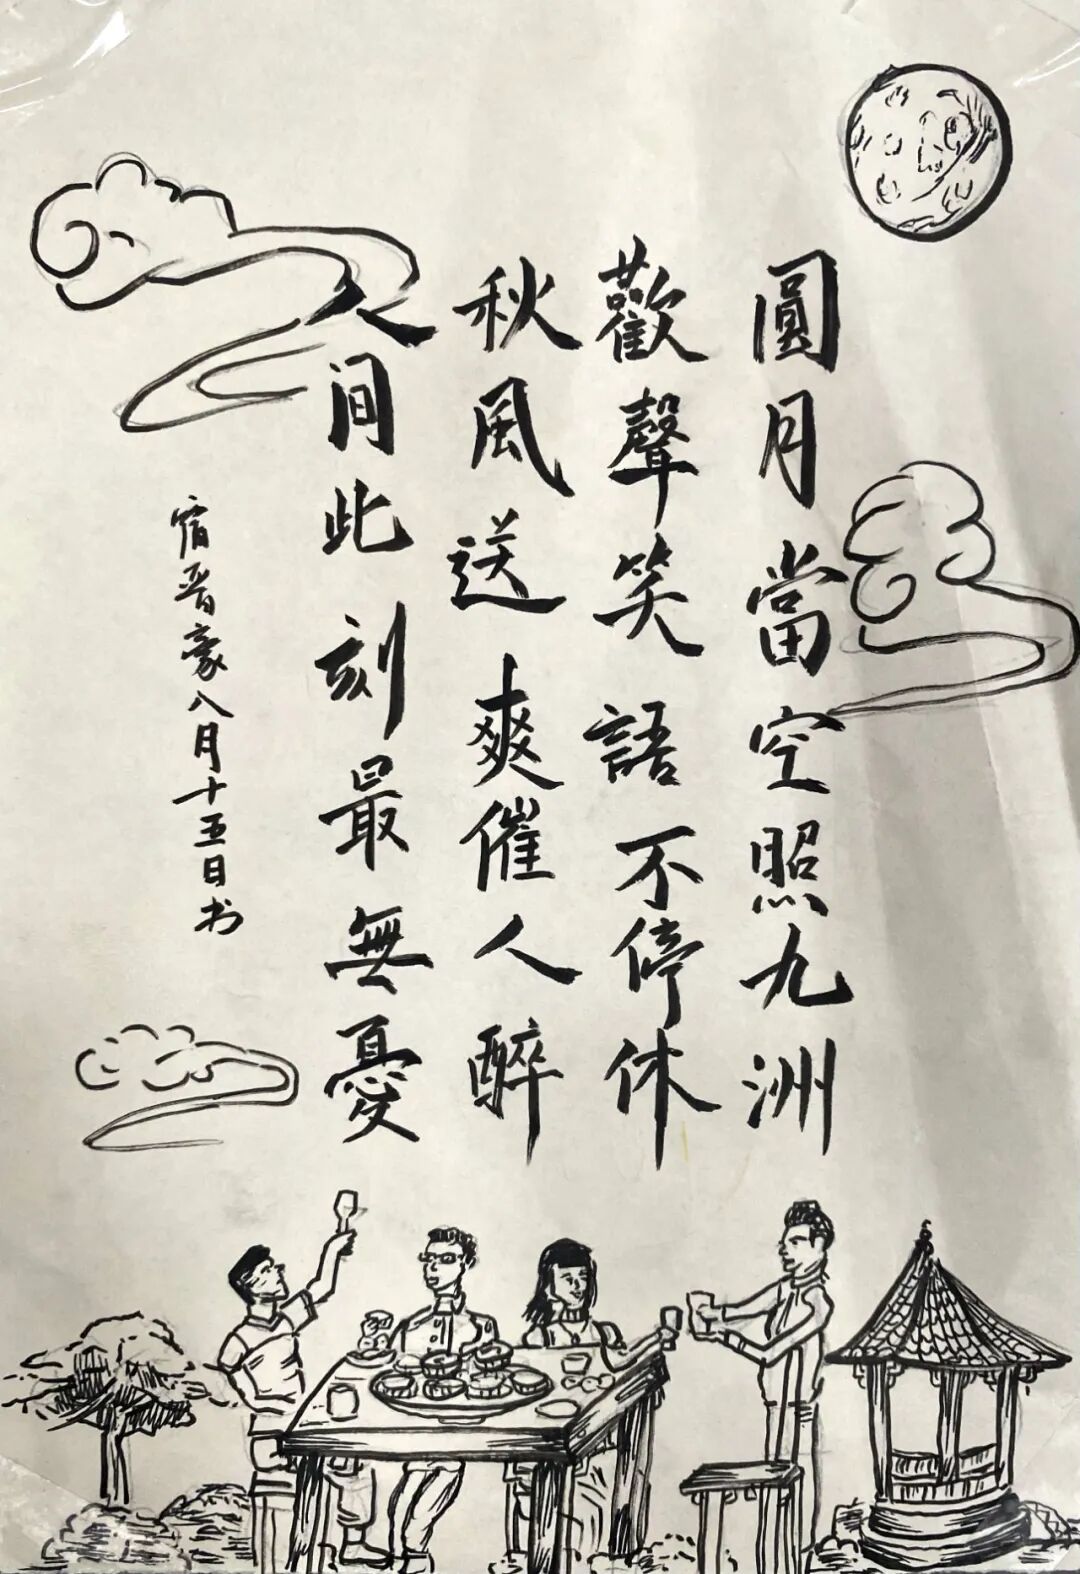 圓月當空照九洲
歡聲笑語不停休
秋風送爽催人醉
人间此刻最無憂
宿晋豪八月十五日书